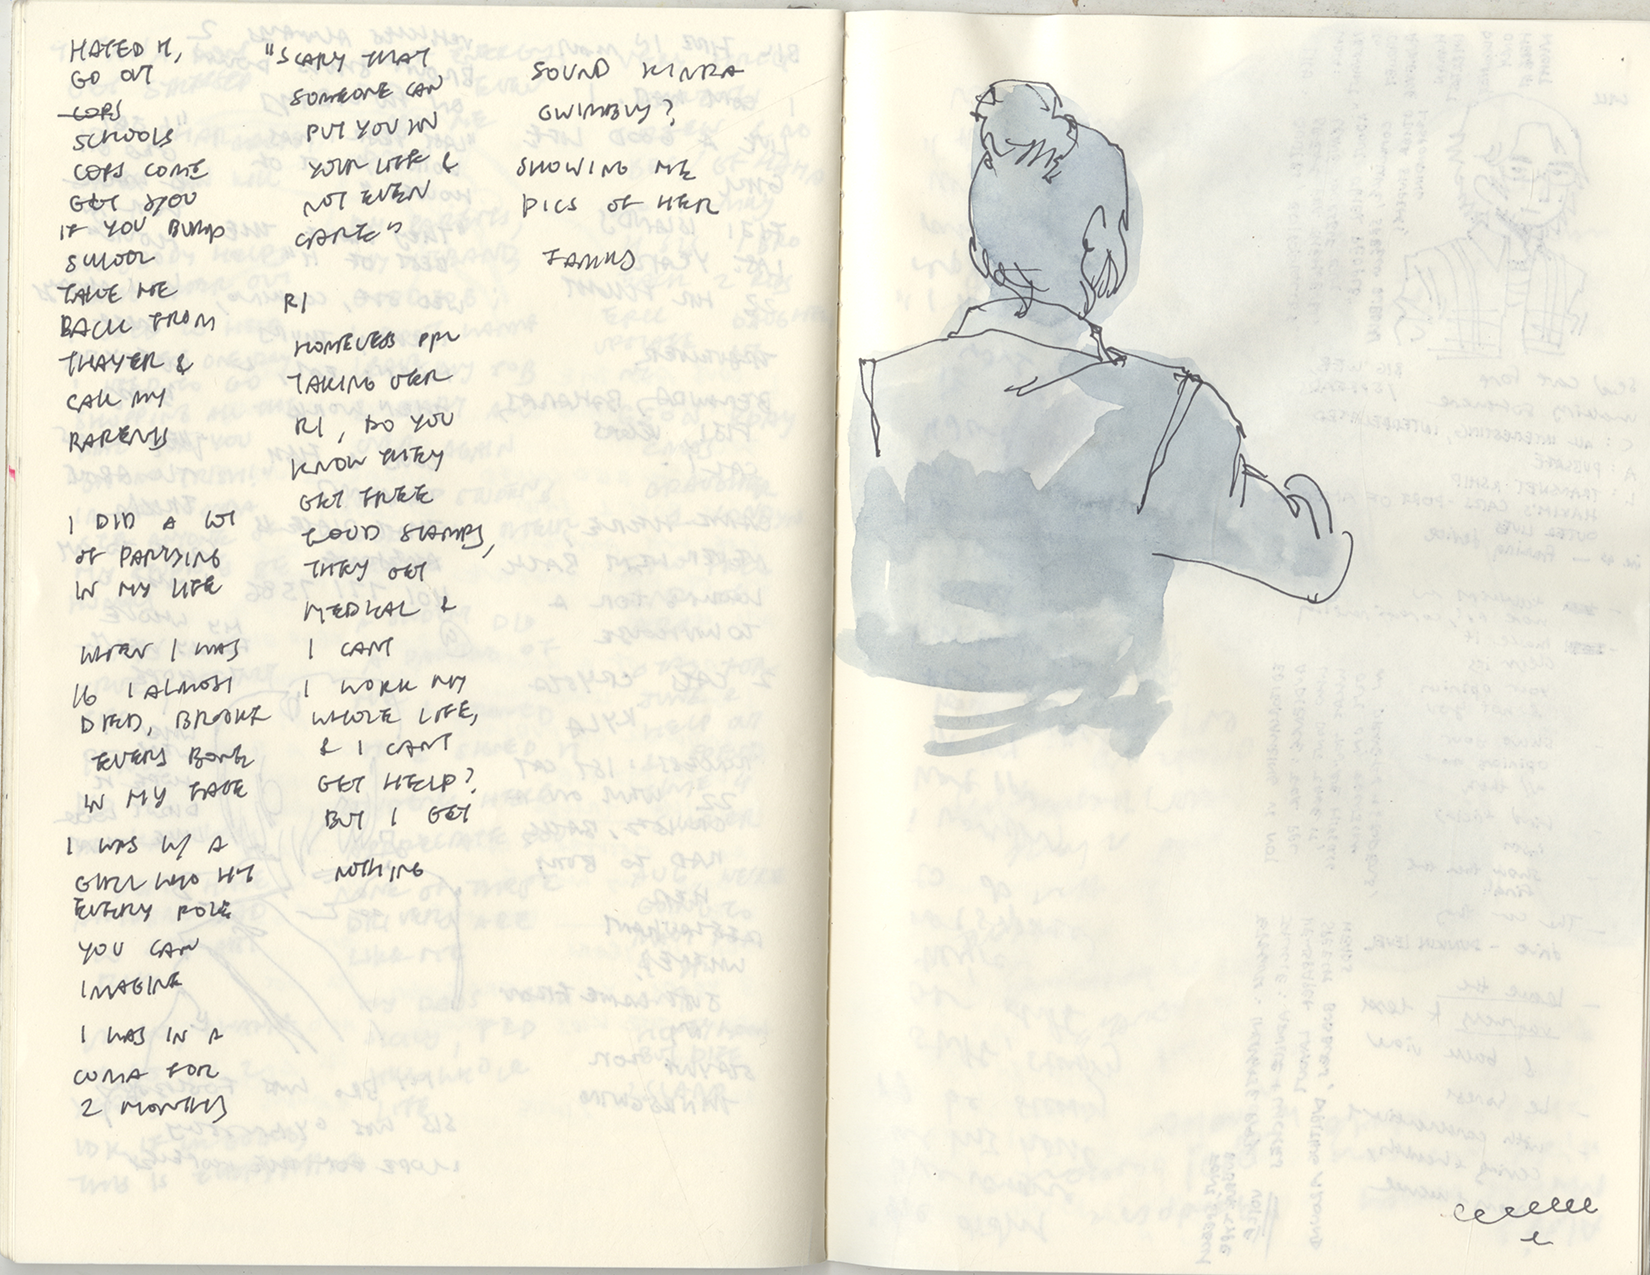 HATED IT,
GO OUT
COPS
SCHOOLS
COPS COME
GET YOU
IF YOU BUMP
SCHOOL
TAKE ME
BACK FROM
THAYER &
CALL MY
PARENTS
I DID A LOT
OF PARTYING
IN MY LIFE
WHEN I WAS
16 I ALMOST
DIED, BROKE
EVERY BONE
IN MY FACE
I WAS W/ A
GIRL WHO HIT
EVERY POLE
YOU CAN
IMAGINE
I WAS IN A
COMA FOR
2 MONTHS
"SCARY THAT
SOMEONE CAN
PUT YOU IN
YOUR LIFE &
NOT EVEN
CARE"
RI
HOMELESS PPL
TAKING OVER
RI, DO YOU
KNOW THEY
GET FREE
FOOD STAMPS,
THEY GET
MEDICAL &
I CANT
I WORK MY
WHOLE LIFE,
& I CANT
GET HELP?
BUT I GET
NOTHING
SOUND KINDA
SHOWING ME
PICS OF HER
FAMILY